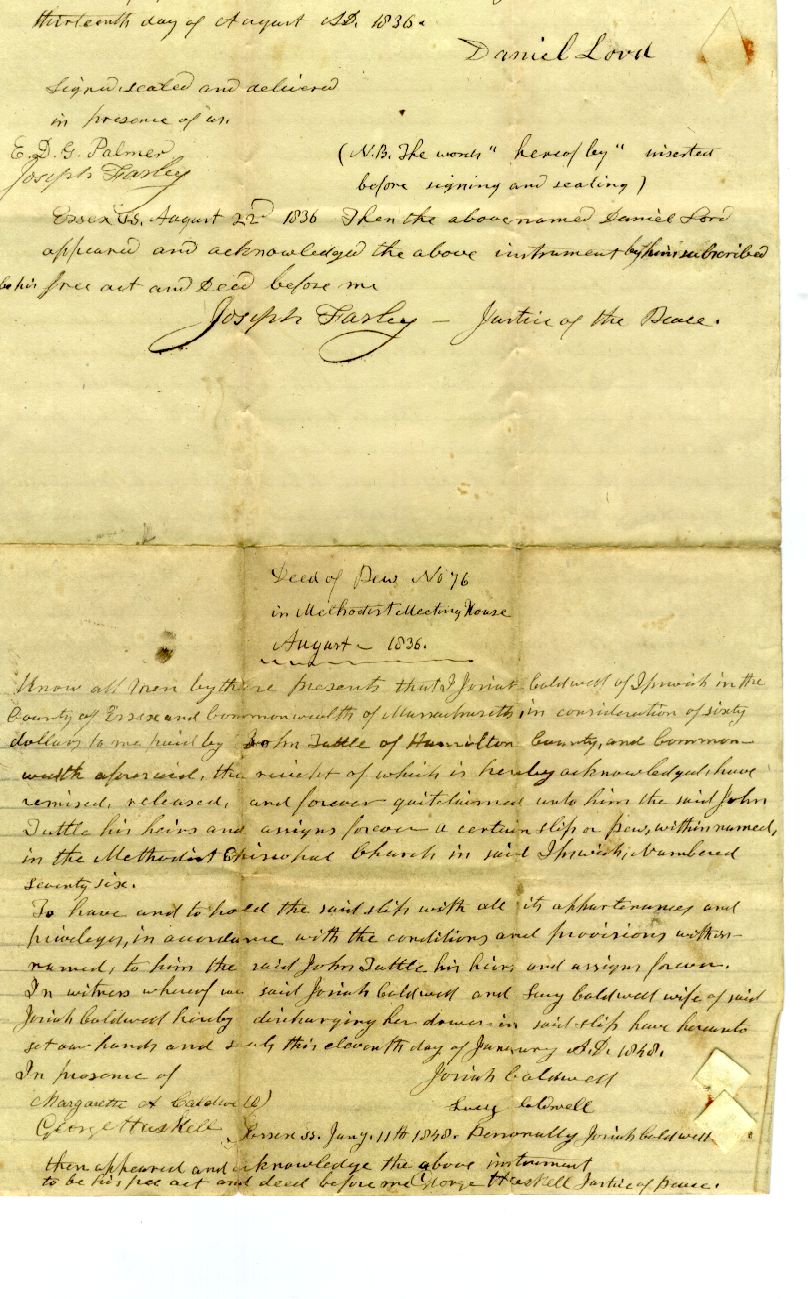 thirteenth day of August A.D. 1836.
Daniel Lord
Signed sealed and delivered
in presence of us.
E. D. G. Palmer
(N.B. The words " hereof by " inserted
Joseph Farley
before signing and sealing)
Essex ss. August 22d 1836 Then the above named Daniel Lord
appeared and acknowledged the above instrument by him subscribed
to be his free act and Deed before me
Joseph Farley — Justice of the Peace.
Deed of Pew No 76
in Methodist Meeting House
August — 1836.
Know all men by these presents that I Josiah Caldwell of Ipswich in the
County of Essex and Commonwealth of Massachusetts, in consideration of sixty
dollars to me paid by John Tuttle of Hamilton County, and Common-
wealth aforesaid, the receipt of which is hereby acknowledged, have
remised, released, and forever quitclaimed unto him the said John
Tuttle his heirs and assigns forever a certain slip or pew, within named,
in the Methodist Episcopal Church in said Ipswich, Numbered
seventy six.
To have and to hold the said slip with all its appurtenances and
privileges, in accordance with the conditions and provisions within
named, to him the said John Tuttle his heirs and assigns forever.
In witness whereof we said Josiah Caldwell and Lucy Caldwell wife of said
Josiah Caldwell hereby discharging her dower in said slip have hereunto
set our hands and seals this eleventh day of January A.D. 1848.
In presence of
Josiah Caldwell
Margarette A Caldwell
Lucy Caldwell
George Haskell
Essex ss. Jany. 11th 1848. Personally Josiah Caldwell
then appeared and acknowledge the above instrument
to be his free act and deed before me George Haskell Justice of Peace.